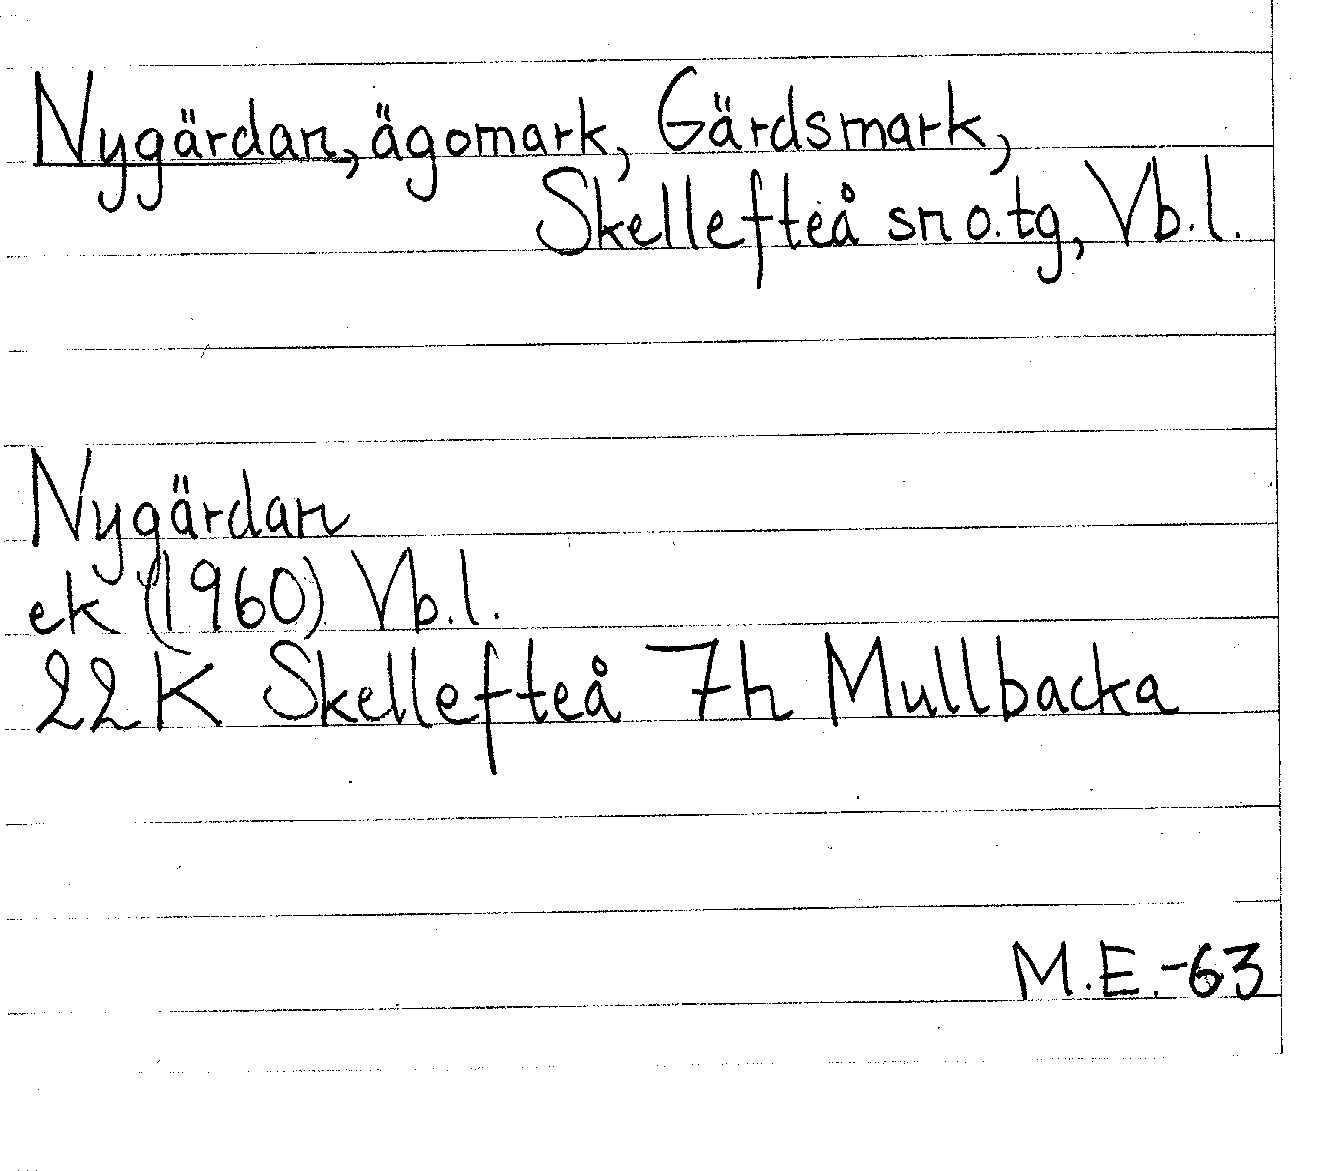 Nygärdan, ägomark, Gärdsmark,
Skellefteå sn o. tg, Vb. l.
Nygärdan
ek (1960) Vb. l.
22K Skellefteå 7h Mullbacka
M.E.-63